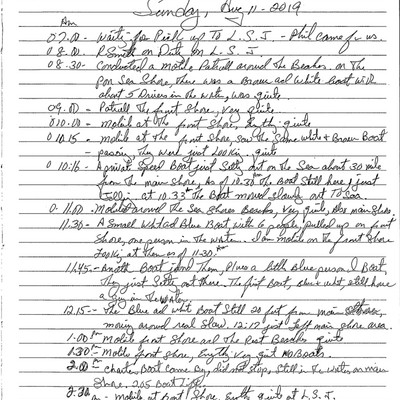 Sunday, Aug 11-2019
Am
07.00- Waite for Pickup to L.S.J. - Phil came for us.
08.00- P. Smith on Duty on L.S.J.
08-30- Conducted a mobile Patroll around the Beaches. on the
Sea Shore, there was a Brown ad White boat with
about 5 Divers in the water, was quite.
09.00- Patroll the front Shore, Very quite.
010.00- mobile at the front Shore, quite
0 10.15 - mobile at the front Shore, saw the Same white & Brown Boat
- passing, they were just Looking. quite
0 10:16- A private Speed Boat just out on the Sea about 30
from the main Shore, As of 10.33 the Boat still here, just
at 10.33 the Boat moved Slowly out To Sea.
0.11.00- Mobile around the Sea Shores Beaches, Very quite, also main Shore
11.30- A Small White & Blue Boat with 6 people, pulled up on front
Shore, one person in the water. I am mobile on the front Shore
Looking at them as of 11.30 am
11.45- Boat join Them, Plus a little Blue person Boat
They just out there. The first Boat, blue & whit, still have
a in the water.
12.15- The Blue ad whit Boat Still 20 feet from main
moving around real Slow. 12:17 just Left main shore area.
1.00 Pm Mobile front Shore ad the Rest Beaches quite
1.30 Pm Mobile front Shore, Very quit No Boats.
2.00 Pm Charter Boat came By, did not stop, Still in the water on main
Shore. 2.05 Boat Left.
2.30 - mobile at front Shore quite at L.S.J.